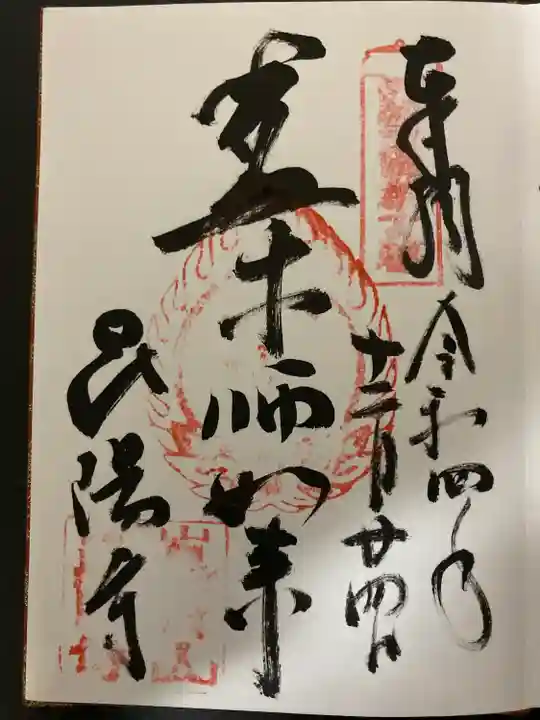 奉拝
令和四年
十二月廿四日
薬師如来
昆陽寺